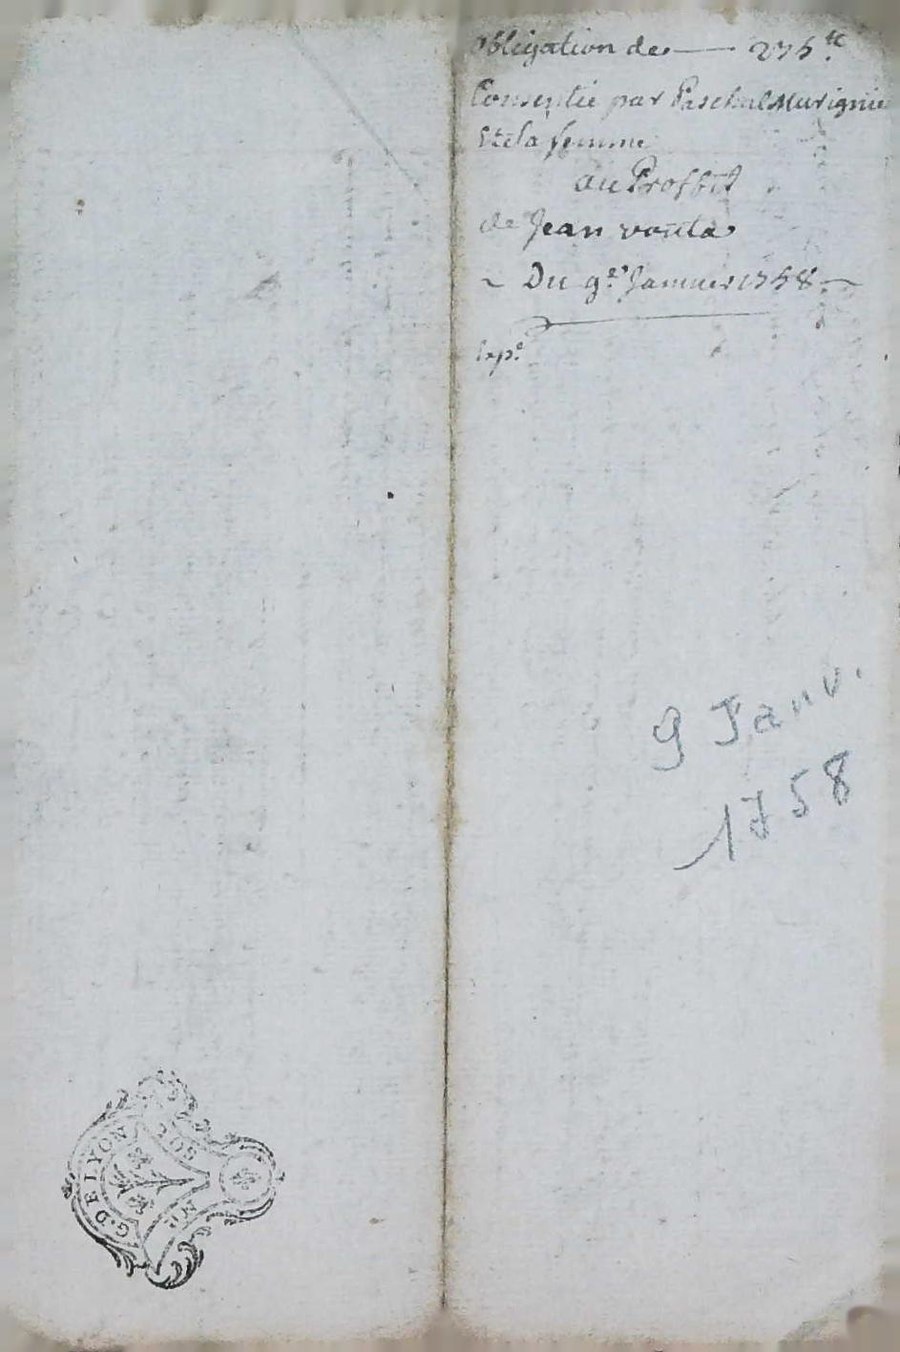 Obligation de — 275 ᵗᵗ.
Consentie par Paschal Murignie
Et sa femme
au Proffit
de Jean voulta
~ Du 9.e Janvier 1758. ~
Exp.e
9 Janv.
1758
G. DE LYON
2 SOLS